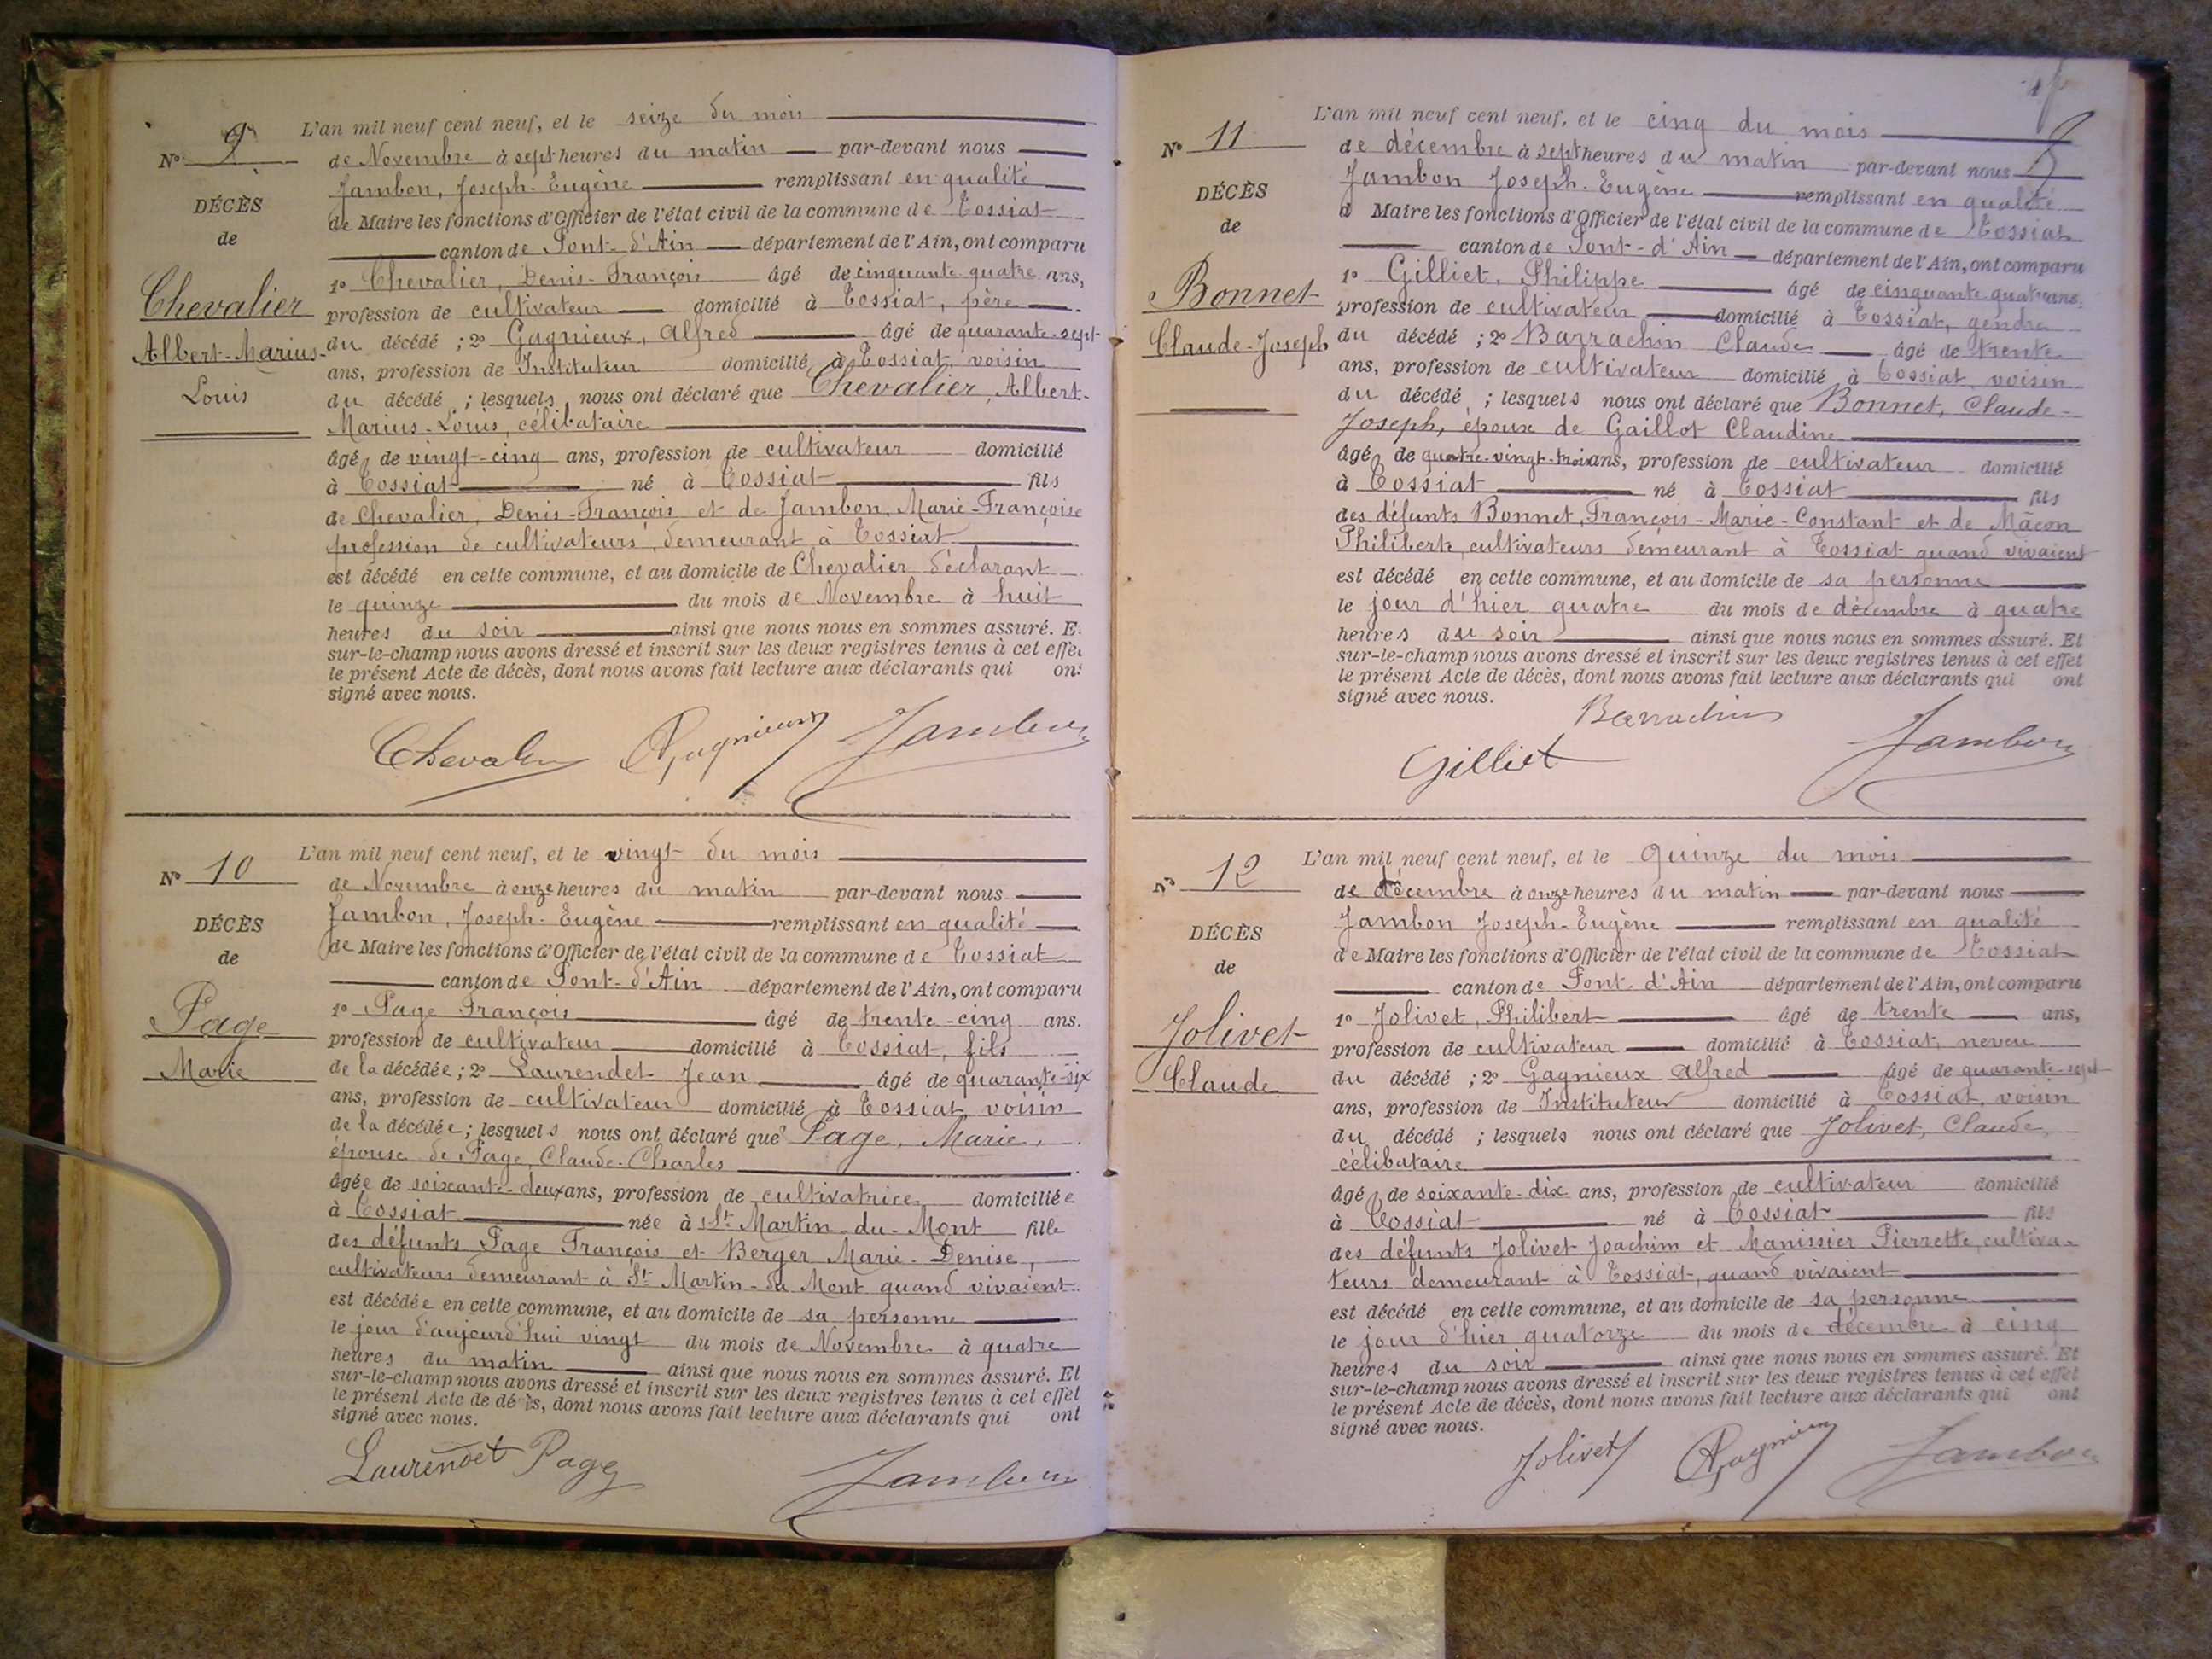 N° 9
DÉCÈS
de
Chevalier
Albert-Marius-
Louis
L'an mil neuf cent neuf, et le seize du mois
de Novembre à sept heures du matin par-devant nous
Jambon, Joseph-Eugène remplissant en qualité
de Maire les fonctions d'Officier de l'état civil de la commune de Tossiat
canton de Pont-d'Ain département de l'Ain, ont comparu
1° Chevalier, Denis-François âgé de cinquante-quatre ans,
profession de cultivateur domicilié à Tossiat, père
du décédé ; 2° Gagnieux, Alfred âgé de quarante-sept
ans, profession de Instituteur domicilié à Tossiat, voisin
du décédé ; lesquels nous ont déclaré que Chevalier, Albert-
Marius-Louis, célibataire
âgé de vingt-cinq ans, profession de cultivateur domicilié
à Tossiat né à Tossiat fils
de Chevalier, Denis-François et de Jambon, Marie-Françoise
profession de cultivateurs, demeurant à Tossiat
est décédé en cette commune, et au domicile de Chevalier déclarant
le quinze du mois de Novembre à huit
heures du soir ainsi que nous nous en sommes assuré. E
sur-le-champ nous avons dressé et inscrit sur les deux registres tenus à cet effe
le présent Acte de décès, dont nous avons fait lecture aux déclarants qui on
signé avec nous.
Chevalier Gagnieux Jambon
N° 10
DÉCÈS
de
Page
Marie
L'an mil neuf cent neuf, et le vingt du mois
de Novembre à onze heures du matin par-devant nous
Jambon, Joseph-Eugène remplissant en qualité
de Maire les fonctions d'Officier de l'état civil de la commune de Tossiat
canton de Pont-d'Ain département de l'Ain, ont comparu
1° Page François âgé de trente-cinq ans.
profession de cultivateur domicilié à Tossiat, fils
de la décédée ; 2° Laurendet Jean âgé de quarante-six
ans, profession de cultivateur domicilié à Tossiat, voisin
de la décédée ; lesquels nous ont déclaré que Page, Marie,
épouse de Page, Claude-Charles
âgée de soixante-deux ans, profession de cultivatrice domiciliée
à Tossiat née à St Martin-du-Mont fille
des défunts Page François et Berger Marie-Denise,
cultivateurs demeurant à St Martin-du Mont quand vivaient
est décédée en cette commune, et au domicile de sa personne
le jour d'aujourd'hui vingt du mois de Novembre à quatre
heures du matin ainsi que nous nous en sommes assuré. Et
sur-le-champ nous avons dressé et inscrit sur les deux registres tenus à cet effet
le présent Acte de dé ès, dont nous avons fait lecture aux déclarants qui ont
signé avec nous.
Laurendet Page Jambon
N° 11
DÉCÈS
de
Bonnet
Claude-Joseph
L'an mil neuf cent neuf, et le cinq du mois
de décembre à sept heures du matin par-devant nous
Jambon Joseph-Eugène remplissant en qualité
d Maire les fonctions d'Officier de l'état civil de la commune de Tossiat
canton de Pont-d'Ain département de l'Ain, ont comparu
1° Gilliet, Philippe âgé de cinquante-quatre ans
profession de cultivateur domicilié à Tossiat, gendre
du décédé ; 2° Barrachin Claude âgé de trente
ans, profession de cultivateur domicilié à Tossiat, voisin
du décédé ; lesquels nous ont déclaré que Bonnet, Claude-
Joseph, époux de Gaillot Claudine
âgé de quatre-vingt-trois ans, profession de cultivateur domicilié
à Tossiat né à Tossiat fils
des défunts Bonnet, François-Marie-Constant et de Mâcon
Philiberte, cultivateurs demeurant à Tossiat quand vivaient
est décédé en cette commune, et au domicile de sa personne
le jour d'hier quatre du mois de décembre à quatre
heures du soir ainsi que nous nous en sommes assuré. Et
sur-le-champ nous avons dressé et inscrit sur les deux registres tenus à cet effet
le présent Acte de décès, dont nous avons fait lecture aux déclarants qui ont
signé avec nous.
Barrachin
Gilliet Jambon
N° 12
DÉCÈS
de
Jolivet
Claude
L'an mil neuf cent neuf, et le quinze du mois
de décembre à onze heures du matin par-devant nous
Jambon Joseph-Eugène remplissant en qualité
de Maire les fonctions d'Officier de l'état civil de la commune de Tossiat
canton de Pont d'Ain département de l'Ain, ont comparu
1° Jolivet, Philibert âgé de trente ans,
profession de cultivateur domicilié à Tossiat, neveu
du décédé ; 2° Gagnieux Alfred âgé de quarante-sept
ans, profession de Instituteur domicilié à Tossiat, voisin
du décédé ; lesquels nous ont déclaré que Jolivet, Claude,
célibataire
âgé de soixante-dix ans, profession de cultivateur domicilié
à Tossiat né à Tossiat fils
des défunts Jolivet Joachim et Manissier Pierrette, cultiva-
teurs demeurant à Tossiat, quand vivaient
est décédé en cette commune, et au domicile de sa personne
le jour d'hier quatorze du mois de décembre à cinq
heures du soir ainsi que nous nous en sommes assuré. Et
sur-le-champ nous avons dressé et inscrit sur les deux registres tenus à cet effet
le présent Acte de décès, dont nous avons fait lecture aux déclarants qui ont
signé avec nous.
Jolivet Gagnieux Jambon